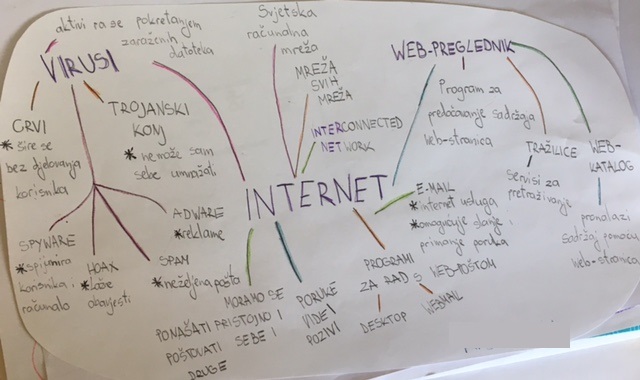 aktivira se pokretanjem
zaraženih
datoteka
VIRUSI
CRVI
* šire se
bez djelovanja
korisnika
TROJANSKI
KONJ
* ne može sam
sebe umnažati
ADWARE
* reklame
SPAM
* neželjena pošta
HOAX
* laže
obavijesti
SPYWARE
* špijunira
korisnika i
računalo
Svjetska
računalna
mreža
MREŽA
SVIH
MREŽA
INTERCONNECTED
NETWORK
INTERNET
WEB-PREGLEDNIK
Program za
predočavanje sadržaja
web-stranica
TRAŽILICE
servisi za
pretraživanje
WEB-
KATALOG
pronalazi
sadržaj pomoću
web-stranica
E-MAIL
* internet usluga
* omogućuje slanje i
primanje poruka
PROGRAMI
ZA RAD S WEB-POŠTOM
DESKTOP
WEBMAIL
PORUKE
VIDEI
POZIVI
MORAMO SE
PONAŠATI PRISTOJNO I
POŠTOVATI SEBE I
DRUGE